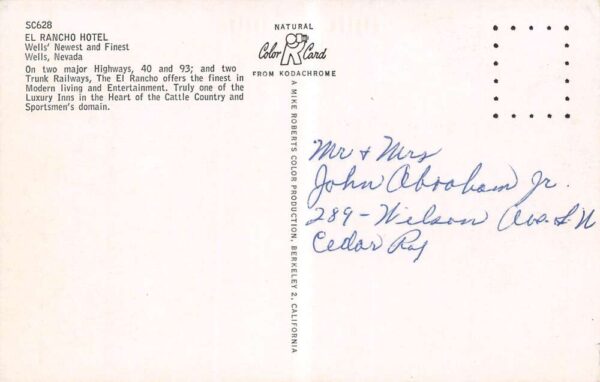 SC628
EL RANCHO HOTEL
Wells' Newest and Finest
Wells, Nevada
On two major Highways, 40 and 93; and two
Trunk Railways, The El Rancho offers the finest in
Modern living and Entertainment. Truly one of the
Luxury Inns in the Heart of the Cattle Country and
Sportsmen's domain.
NATURAL
Color Card
FROM KODACHROME
A MIKE ROBERTS COLOR PRODUCTION, BERKELEY 2, CALIFORNIA
Mr + Mrs
John Abraham Jr.
289 - Wilson Ave. S.W
Cedar Rap